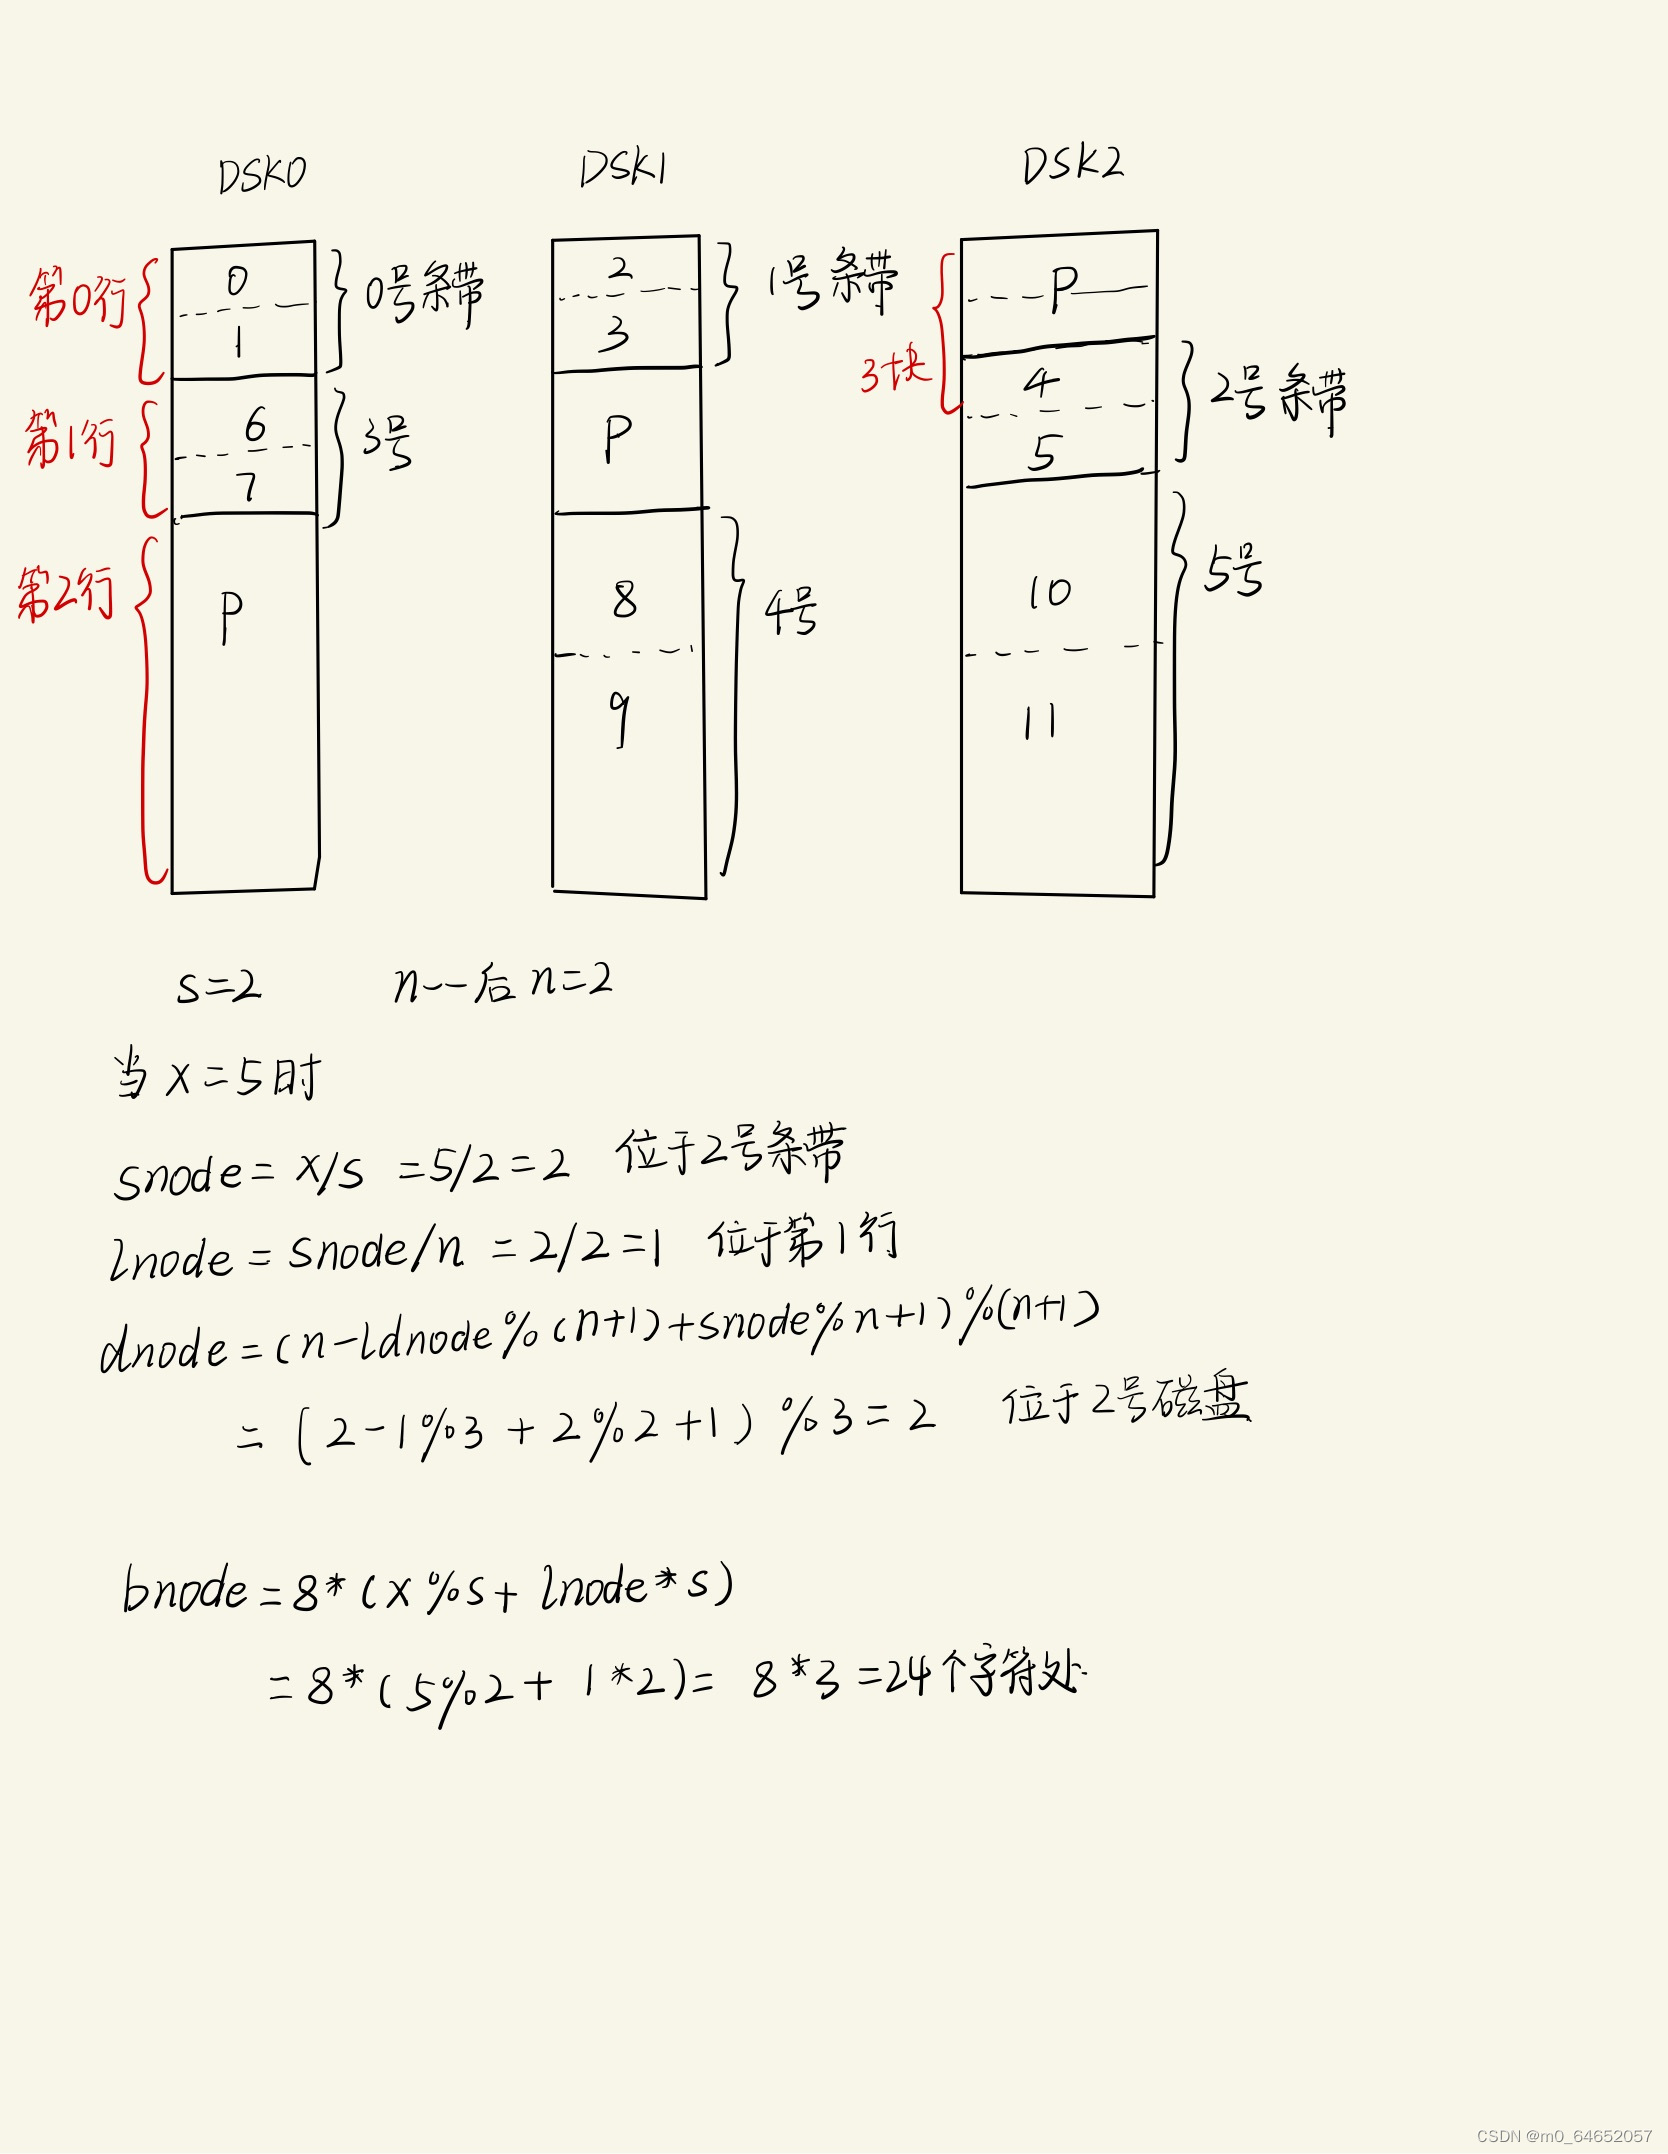 DSK0 DSK1 DSK2
第0行 0 0号条带 2 1号条带 P
1 3 3块
第1行 6 3号 P 4 2号条带
7 5
第2行 P 8 4号 10 5号
9 11
s=2 n--后 n=2
当 x=5时
snode= x/s =5/2=2 位于2号条带
lnode = snode/n =2/2=1 位于第1行
dnode=(n-ldnode%(n+1)+snode%n+1)%(n+1)
= (2-1%3+2%2+1)%3=2 位于2号磁盘
bnode=8*(x%s+lnode*s)
=8*(5%2+1*2)= 8*3=24个字符处
CSDN @m0_64652057